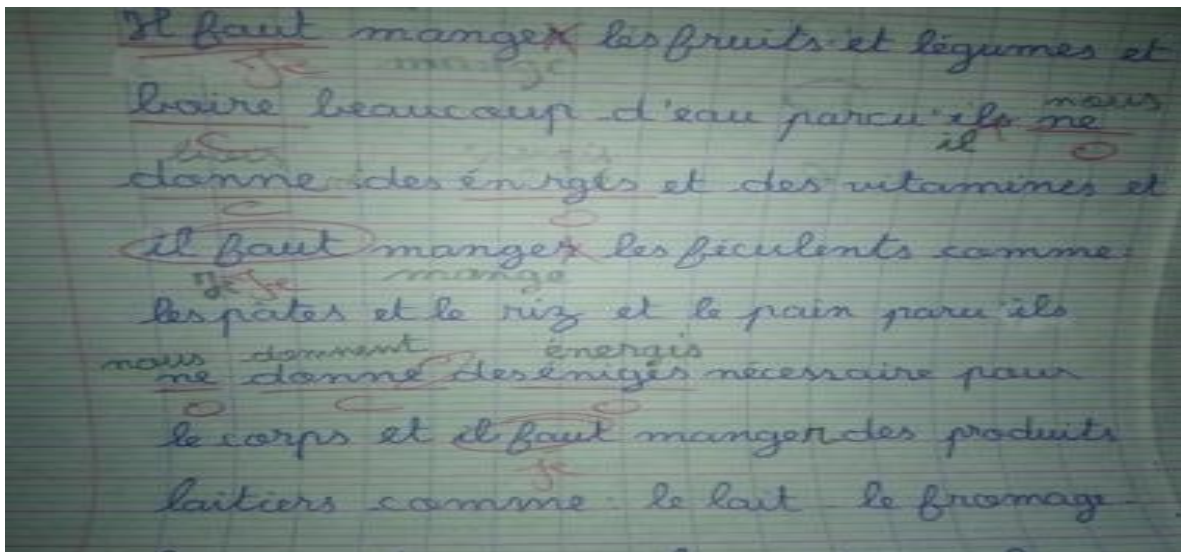 Il faut manger les fruits et légumes et
Je mange
boire beaucoup d'eau parcu'ils ne
nous
il
donne des énirgés et des vitamines et
il faut manger les féculents comme
Je Je mange
les pâtes et le riz et le pain parcu'ils
nous donnent énergis
ne donné des énigés nécessaire pour
le corps et il faut manger des produits
Je
laitiers comme le lait le fromage